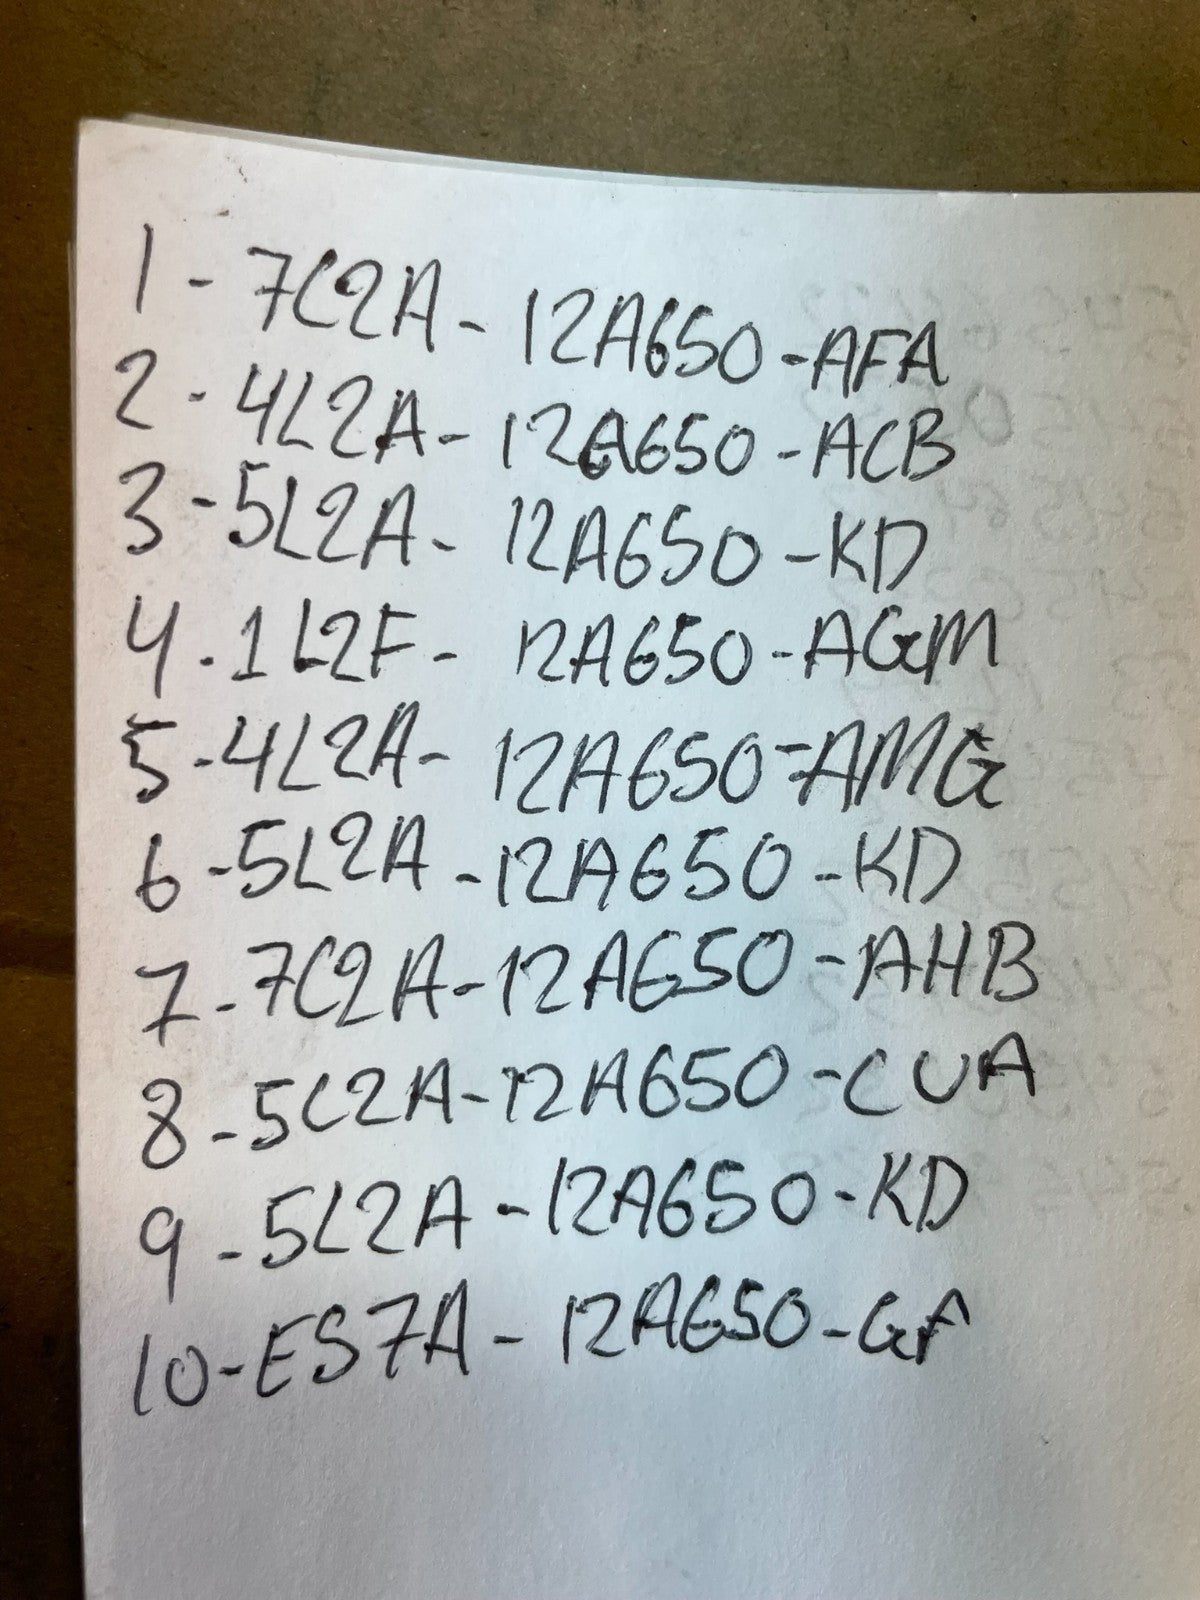 1 - 7C2A - 12A650 - AFA
2 - 4L2A - 12A650 - ACB
3 - 5L2A - 12A650 - KD
4 - 1L2F - 12A650 - AGM
5 - 4L2A - 12A650 - AMG
6 - 5L2A - 12A650 - KD
7 - 7C2A - 12A650 - AHB
8 - 5C2A - 12A650 - CUA
9 - 5L2A - 12A650 - KD
10 - ES7A - 12A650 - GA